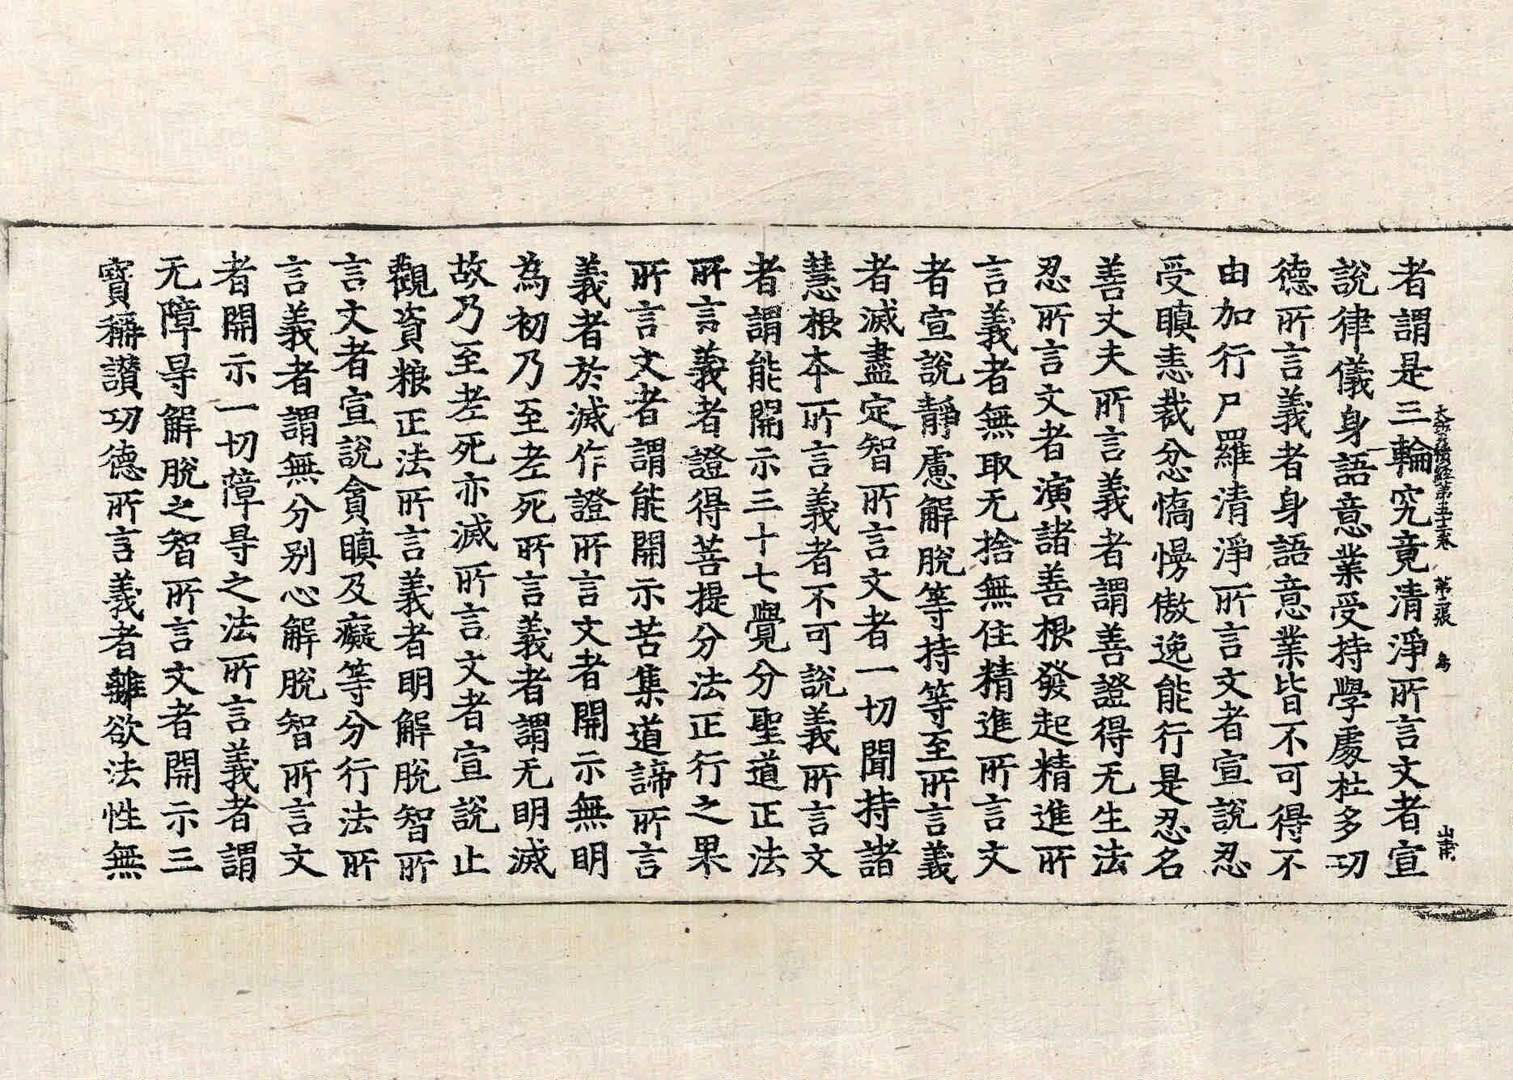 者謂是三輪究竟清淨所言文者宣
說律儀身語意業受持學處杜多功
德所言義者身語意業皆不可得不
由加行尸羅清淨所言文者宣說忍
受瞋恚裁忿憍慢傲逸能行是忍名
善丈夫所言義者謂善證得无生法
忍所言文者演諸善根發起精進所
言義者無取无捨無住精進所言文
者宣說靜慮解脫等持等至所言義
者滅盡定智所言文者一切聞持諸
慧根本所言義者不可說義所言文
者謂能開示三十七覺分聖道正法
所言義者證得菩提分法正行之果
所言文者謂能開示苦集道諦所言
義者於滅作證所言文者開示無明
為初乃至老死所言義者謂无明滅
故乃至老死亦滅所言文者宣說止
觀資粮正法所言義者明解脫智所
言文者宣說貪瞋及癡等分行法所
言義者謂無分別心解脫智所言文
者開示一切障㝵之法所言義者謂
无障㝵解脫之智所言文者開示三
寶稱讚功德所言義者離欲法性無